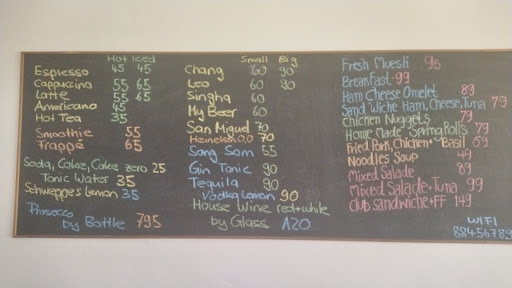 Hot Iced
Espresso 45 45
Cappuccino 55 65
Latte 55 65
Americano 45
Hot Tea 35
Smoothie 55
Frappé 65
Soda, Coke, Coke zero 25
Tonic Water 35
Schweppes Lemon 35
Prosecco
by Bottle 795
Small Big
Chang 60 90
Leo 60 90
Singha 60
My Beer 60
San Miguel 70
Heineken 0,0 70
Sang Som 55
Gin Tonic 90
Tequila 90
Vodka Lemon 90
House Wine red+white
by Glass 120
Fresh Muesli 95
Breakfast 99
Ham Cheese Omelet 89
Sand Wiche Ham, Cheese, Tuna 79
Chicken Nuggets 79
Home Made Spring Rolls 79
Fried Pork, Chicken + Basil 69
Noodles Soup 49
Mixed Salade 89
Mixed Salade + Tuna 99
Club sandwiche + FF 149
WIFI
88456789